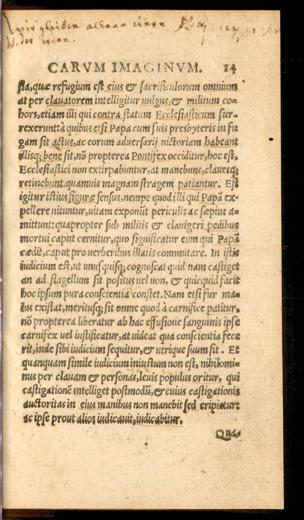 CARVM IMAGINVM. 14
sta, quæ refugium est eius & sacrificulorum omnium
at per clauatorem intelligitur uulgus, & militum co-
hors, etiam illi qui contra statum Ecclesiasticum sur-
rexerunt: à quibus etsi Papa cum suis presbyteris in fu
gam sit actus, ac eorum aduersarij uictoriam habeant
illisq; bene sit, nō propterea Pontifex occiditur, hoc est,
Ecclesiastici non extirpabuntur, at manebunt, clauesq;
retinebunt, quamuis magnam stragem patiantur. Est
igitur istius figuræ sensus, nempe quod illi qui Papā ex-
pellere nituntur, uitam exponūt periculis ac sæpius a-
mittunt: quapropter sub militis & clauigeri pedibus
mortui caput cernitur, quo significatur eum qui Papā
cædit, caput pro uerberibus illatis commutare. In istis
iudicium est, ut unusquisq; cognoscat quid nam castiget
an ad flagellum sit positus uel non, & quicquid facit
hoc ipsum pura conscientia constet. Nam etsi fur ma-
lus existat, meritusq; sit omne quod à carnifice patitur,
nō propterea liberatur ab hac effusione sanguinis ipse
carnifex uel iustificatur, at uideat qua conscientia fece
rit, inde sibi iudicium sequitur, & utrique suum sit. Et
quanquam simile iudicium iniustum non est, nihilomi-
nus per clauam & personas, leuis populus oritur, qui
castigationē intelliget postmodū, & cuius castigationis
auctoritas in eius manibus non manebit sed eripietur:
ac ipse prout alios iudicauit, iudicabitur.
Quæ